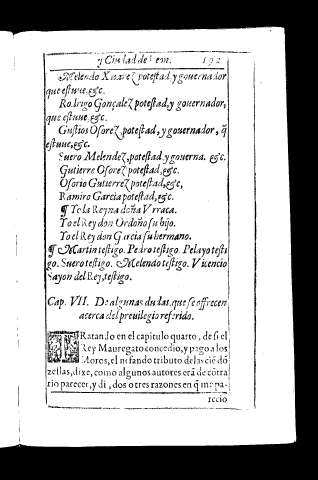 y Ciudad de Leon. 192
Melendo Xuarez potestad, y governador
que estuue, &c.
Rodrigo Gonçalez potestad, y governador,
que estuue &c.
Gustios Osorez, potestad, y governador, q̃
estuue, &c.
Suero Melendez, potestad, y governa. &c.
Gutierre Osorez potestad, &c.
Osorio Gutierrez potestad, &c,
Ramiro Garcia potestad, &c.
¶ Yo la Reyna doña Vrraca.
Yo el Rey don Ordoño su hijo.
Yo el Rey don Garcia su hermano.
¶ Martin testigo. Pedro testigo. Pelayo testi
go. Suero testigo. Melendo testigo. Vicencio
Sayon del Rey, testigo.
Cap. VII. De algunas dudas, que se offrecen
acerca del previlegio referido.
TRatando en el capitulo quarto, de si el
Rey Mauregato concedio, y pago a los
Moros, el nefando tributo de las ciẽ dõ
zellas, dixe, como algunos autores erã de cõtra
rio parecer, y di, dos o tres razones en q̃ me pa-
recio